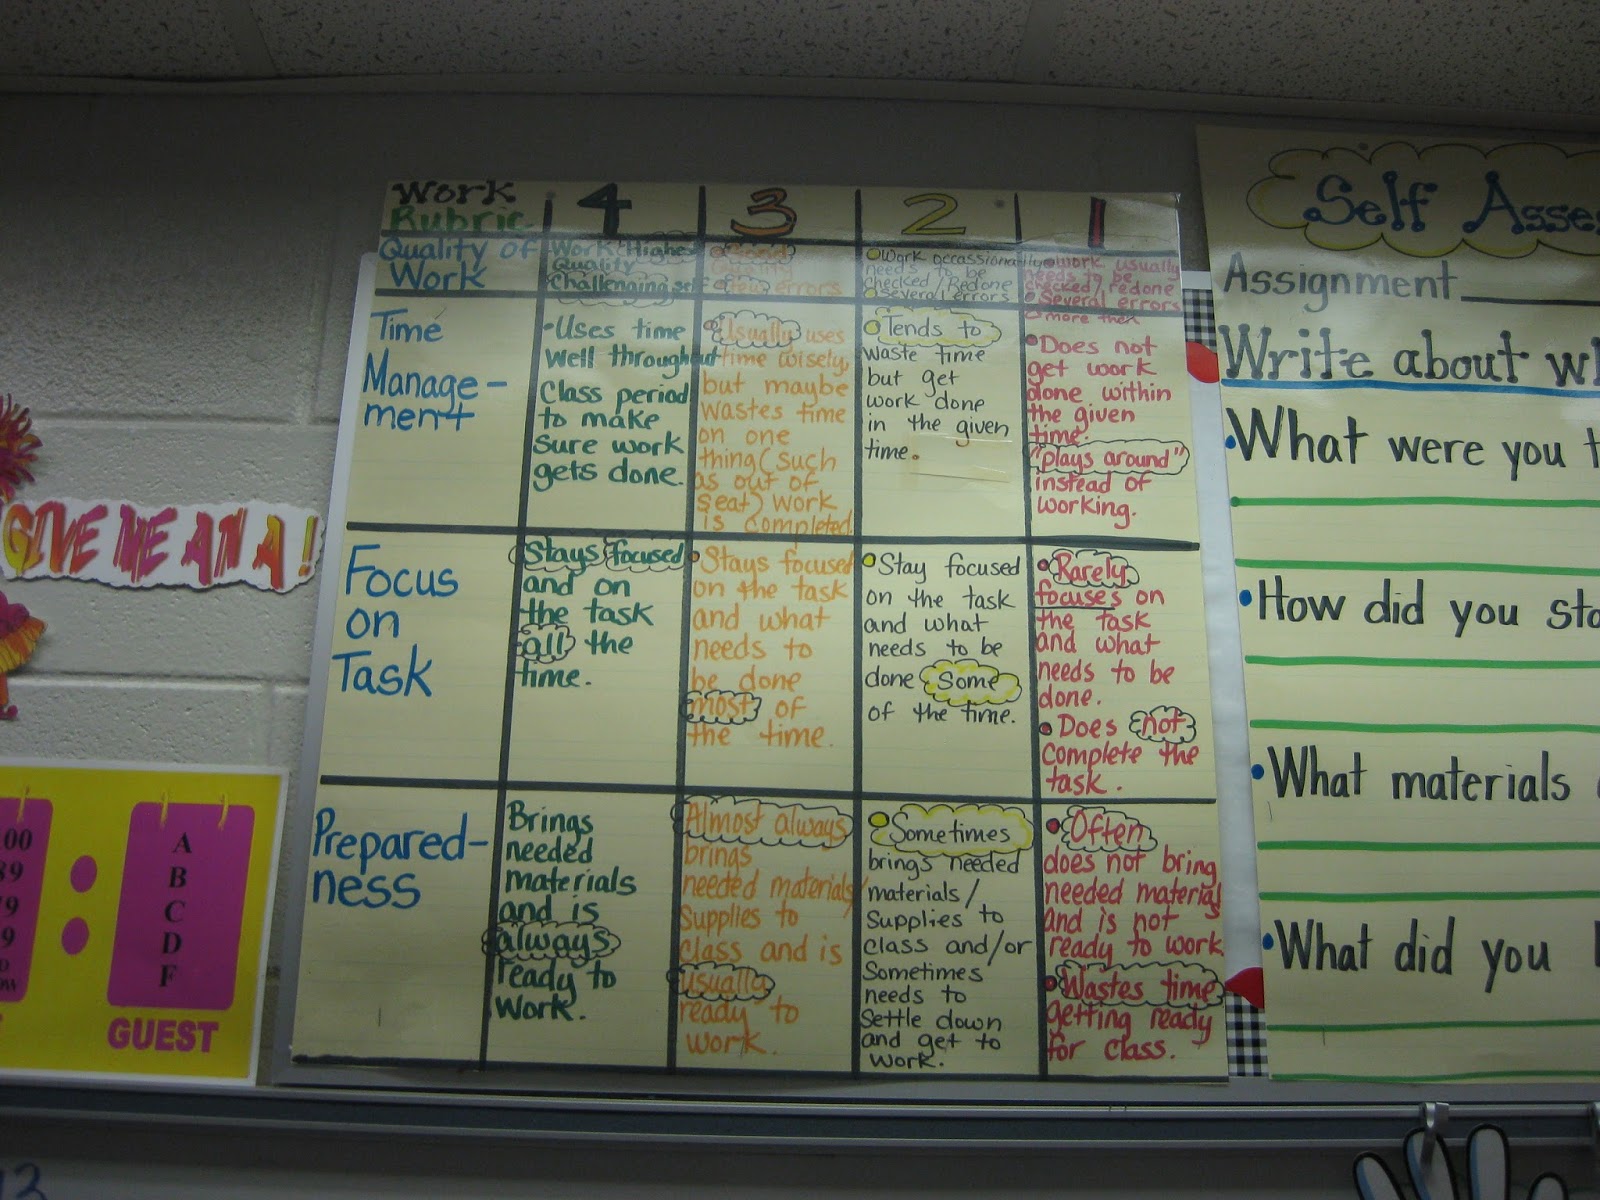 Work
Rubric
4
3
2
1
Quality of
Work
Work Highest
Quality
Challenging self
Good
Quality
Few errors
Work occassionally
needs to be
checked/Redone
Several errors
work usually
needs to be
checked/redone
Several errors
more then
Time
Manage-
ment
Uses time
well throughout
Class period
to make
sure work
gets done.
Usually uses
time wisely,
but maybe
wastes time
on one
thing (such
as out of
seat) work
is completed
Tends to
waste time
but get
work done
in the given
time.
Does not
get work
done within
the given
time.
"plays around"
instead of
working.
Focus
on
Task
Stays focused
and on
the task
all the
time.
Stays focused
on the task
and what
needs to
be done
most of
the time.
Stay focused
on the task
and what
needs to be
done Some
of the time.
Rarely
focuses on
the task
and what
needs to be
done.
Does not
complete the
task.
Prepared-
ness
Brings
needed
materials
and is
always
ready to
work.
Almost always
brings
needed materials/
supplies to
class and is
usually
ready to
work.
Sometimes
brings needed
materials/
supplies to
class and/or
Sometimes
needs to
settle down
and get to
work.
Often
does not bring
needed material
and is not
ready to work
Wastes time
getting ready
for class.
Self Asses
Assignment
Write about wh
What were you t
How did you sta
What materials
What did you
GIVE ME AN A!
00
89
79
9
A
B
C
D
F
GUEST